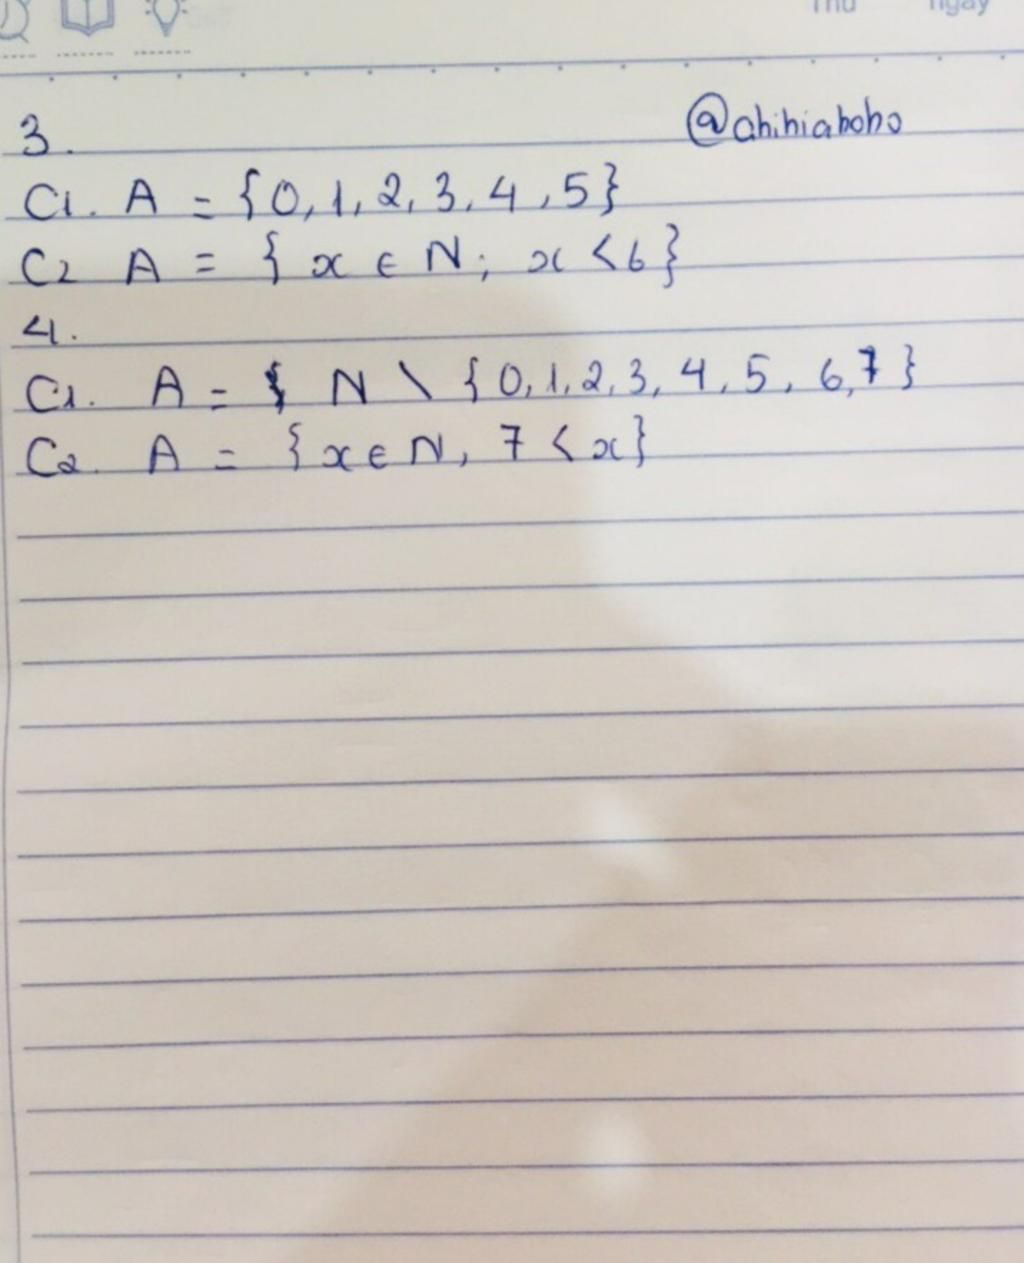 Thứ ngày
3. @ahihiahoho
C1. A = {0, 1, 2, 3, 4, 5}
C2 A = { x ∈ N; x < 6 }
4.
C1. A = { N \ {0, 1, 2, 3, 4, 5, 6, 7}
C2. A = {x ∈ N, 7 < x}